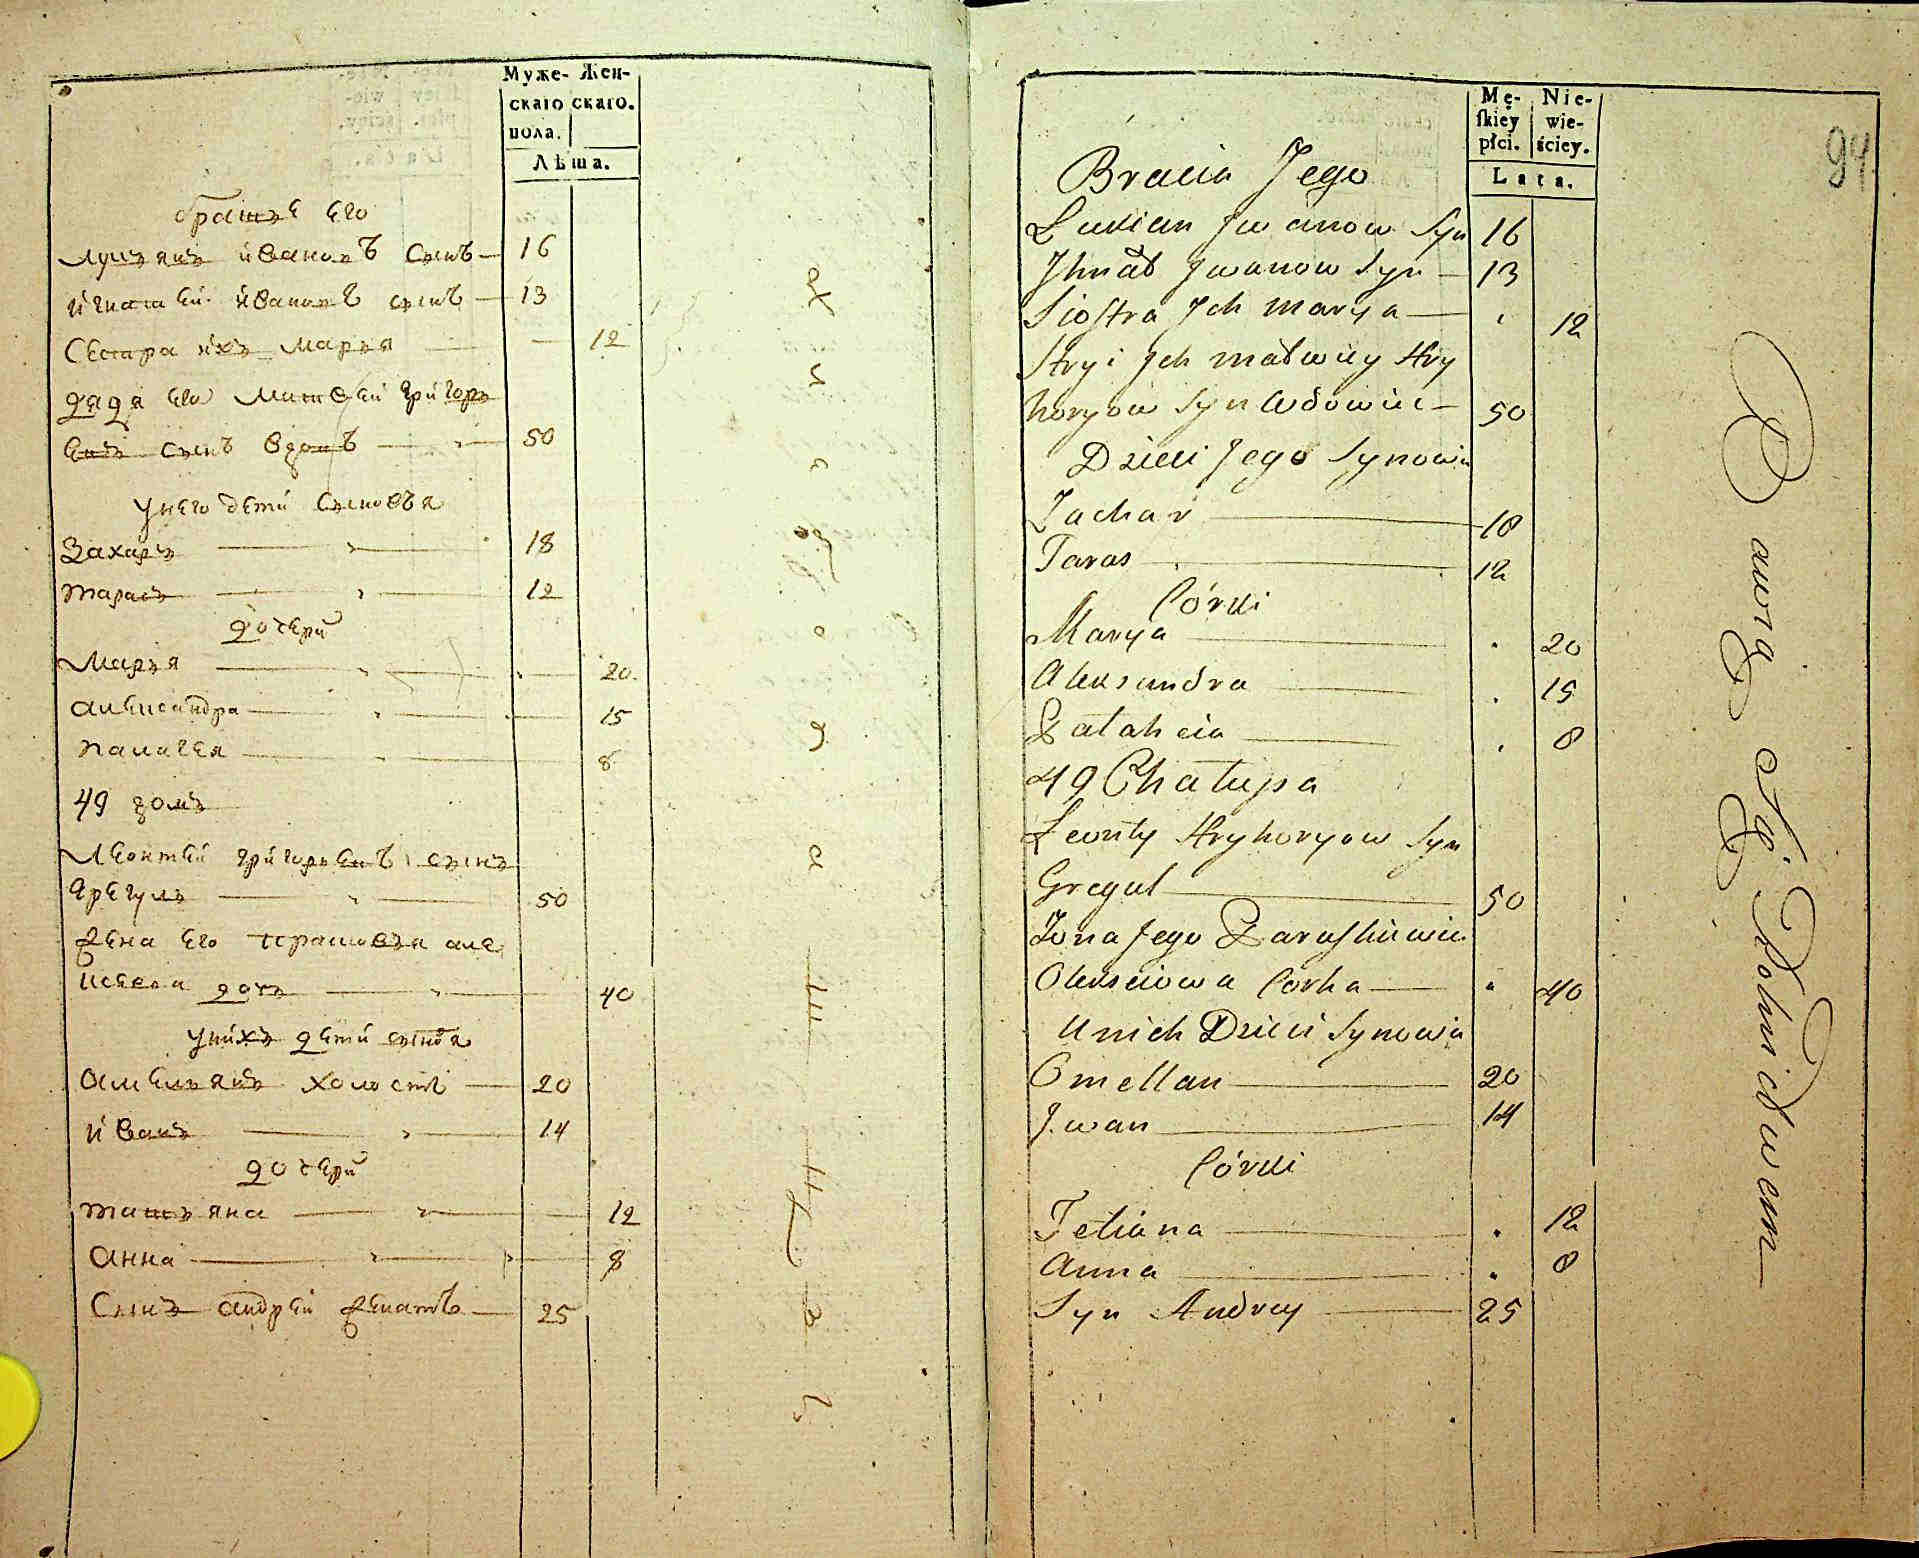 Муже- Жен-
скаго скаго.
пола.
Лѣта.
братьѣ его
лукьянъ ивановъ сынъ 16
игнатей ивановъ сынъ 13
Сестра ихъ марья 12
дядя его матвей григорь
евъ сынъ вдовъ 50
унего дети сыновья
Захаръ 18
тарасъ 12
дочери
Марья 20
александра 15
палагея 8
49 домъ
Леонтей григорьевъ сынъ
грегуль 50
жена его
дочь 40
унихъ дети сыновья
амельянъ холостъ 20
иванъ 14
дочери
татьяна 12
анна 8
Сынъ андрей женатъ 25
Mę- Nie-
skiey wie-
płci. ściey.
Lata.
94
Bracia Jego
Lukian Jwanow Syn 16
Jhnat Jwanow Syn 13
Siostra Jch marya 12
Stryi Jch matwiey Hry
horyow Syn Wdowiec 50
Dzieci Jego Synowie
Zachar 18
Taras 12
Córki
Marya 20
Aleksandra 15
Palaheia 8
49 Chałupa
Leonty Hryhoryow Syn
Gregul 50
Zona Jego Paraskiewia
Olexeiowa Corka 40
Unich Dzieci Synowie
Omellan 20
Jwan 14
Córki
Tetiana 12
Anna 8
Syn Andrey 25